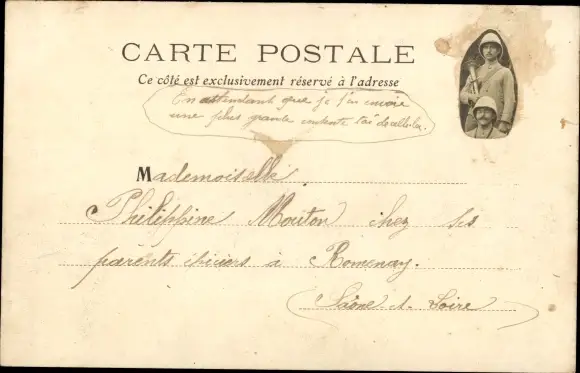 CARTE POSTALE
Ce côté est exclusivement réservé à l'adresse
En attendant que je t'en envoie
une plus grande contente toi de celle-la.
Mademoiselle
Philippine Mouton chez ses
parents épiciers à Romenay.
(Saône-et-Loire)